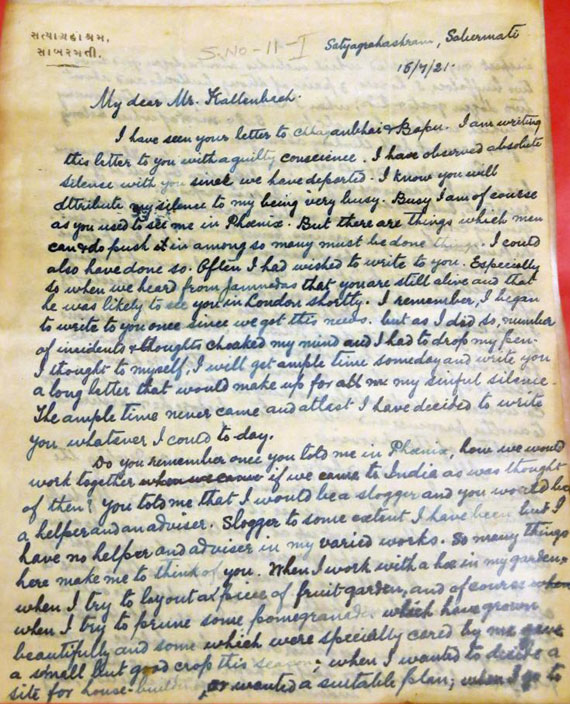 સત્યાગ્રહાશ્રમ,
સાબરમતી.
S.NO-11-I
Satyagrahashram, Sabermati
15/7/21.
My dear Mr. Kallenbach.
I have seen your letter to Chhaganbhai & Bapu. I am writing
this letter to you with a guilty conscience. I have observed absolute
silence with you since we have departed. I know you will
attribute my silence to my being very busy. Busy I am of course
as you used to see me in Phœnix. But there are things which men
can & do push it in among so many must be done things. I could
also have done so. Often I had wished to write to you. Especially
so when we heard from Jamnadas that you are still alive and that
he was likely to see you in London shortly. I remember, I began
to write to you once since we got this news. but as I did so, number
of incidents & thoughts choaked my mind and I had to drop my pen.
I thought to myself, I will get ample time someday and write you
a long letter that would make up for all my sinful silence.
The ample time never came and atlast I have decided to write
you whatever I could to day.
Do you remember once you told me in Phœnix, how we would
work together when we came if we came to India as was thought
of then? You told me that I would be a slogger and you would be
a helper and an adviser. Slogger to some extent I have been but I
have no helper and adviser in my varied works. So many things
here make me to think of you. When I work with a hoe in my garden,
when I try to layout a piece of fruit garden, and of course when
when I try to prune some pomegranades which have grown
beautifully and some which were specially cared by me gave
a small but good crop this season; when I wanted to decide a
site for house-building, or wanted a suitable plan; when I go to